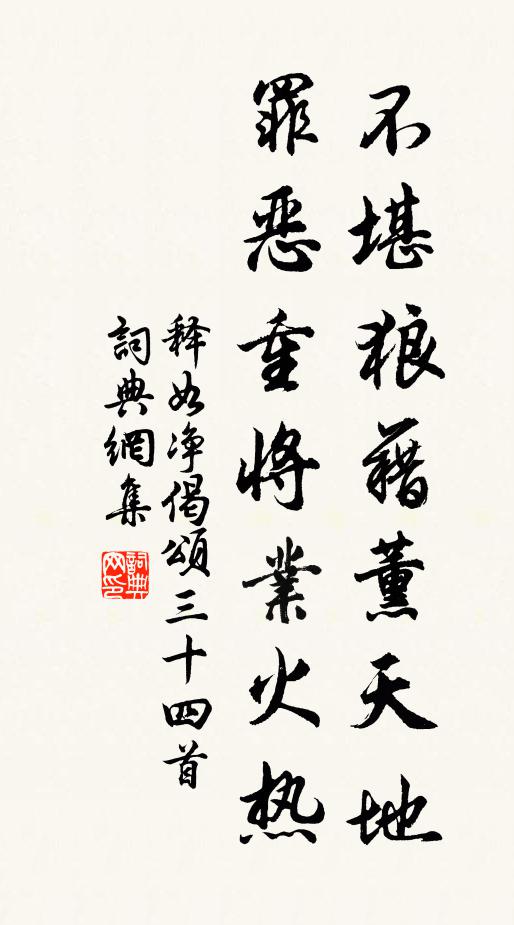 不堪狼藉薰天地
罪恶重将業火热
释如净偈颂三十四首
詞典網集
詞典网印